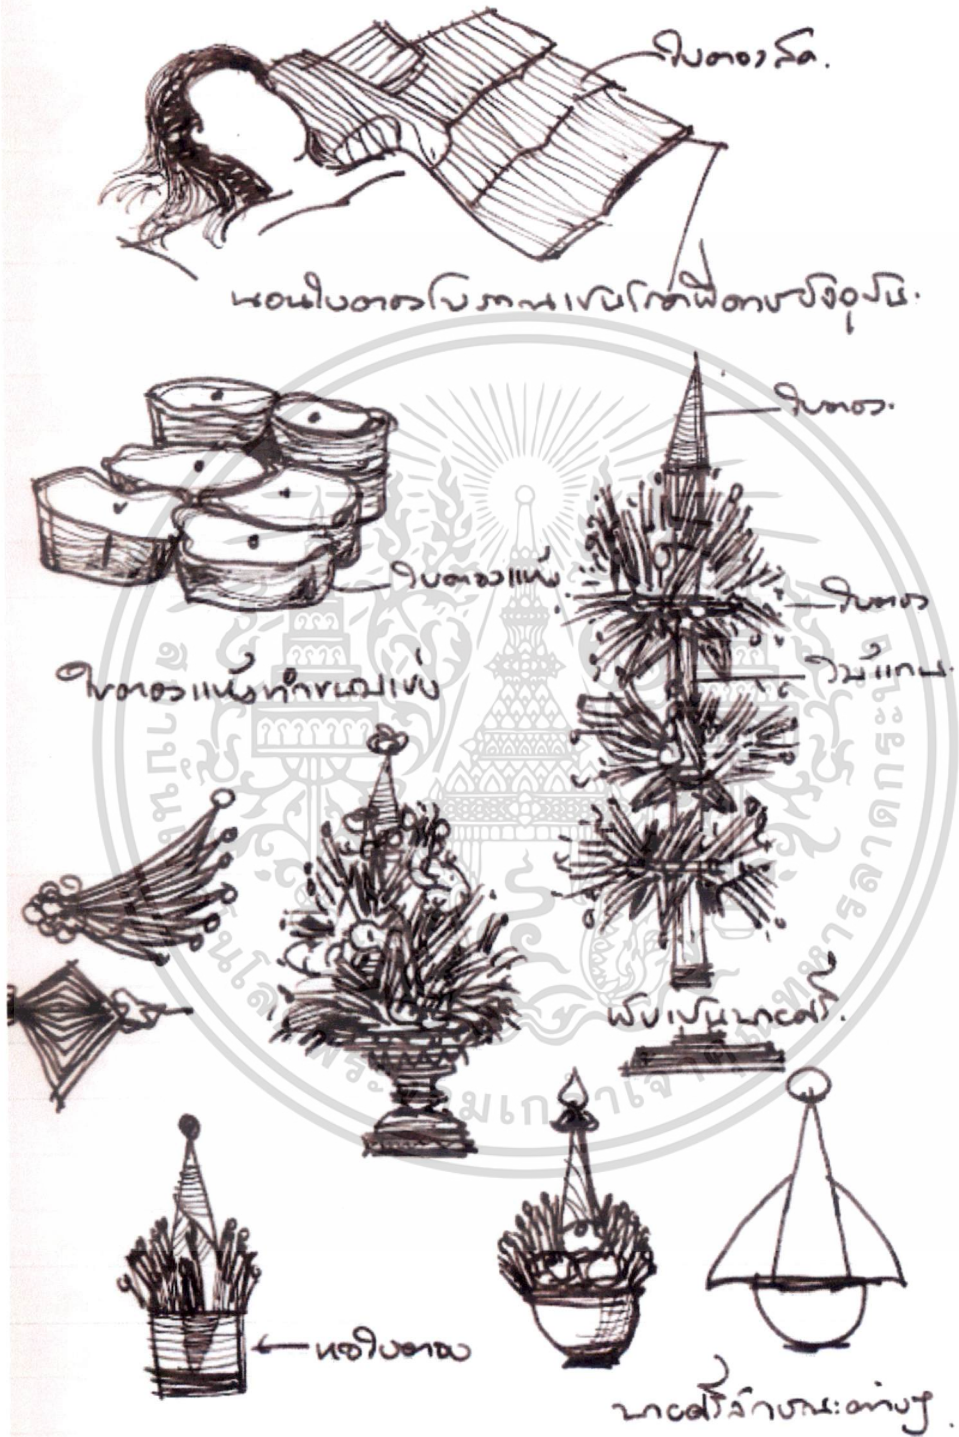 ใบตองสด.
นอนใบตองโบราณเช่นโกศผีตายปัจจุบัน.
ใบตอง.
ใบตองแห้ง
ใบตอง
ไม้แกน.
ใบตองแห้งทำขนมเข่ง
พับเป็นบายศรี.
ห่อใบตอง
บายศรีลักษณะต่างๆ.
สถาบันเทคโนโลยีพระจอมเกล้าเจ้าคุณทหารลาดกระบัง